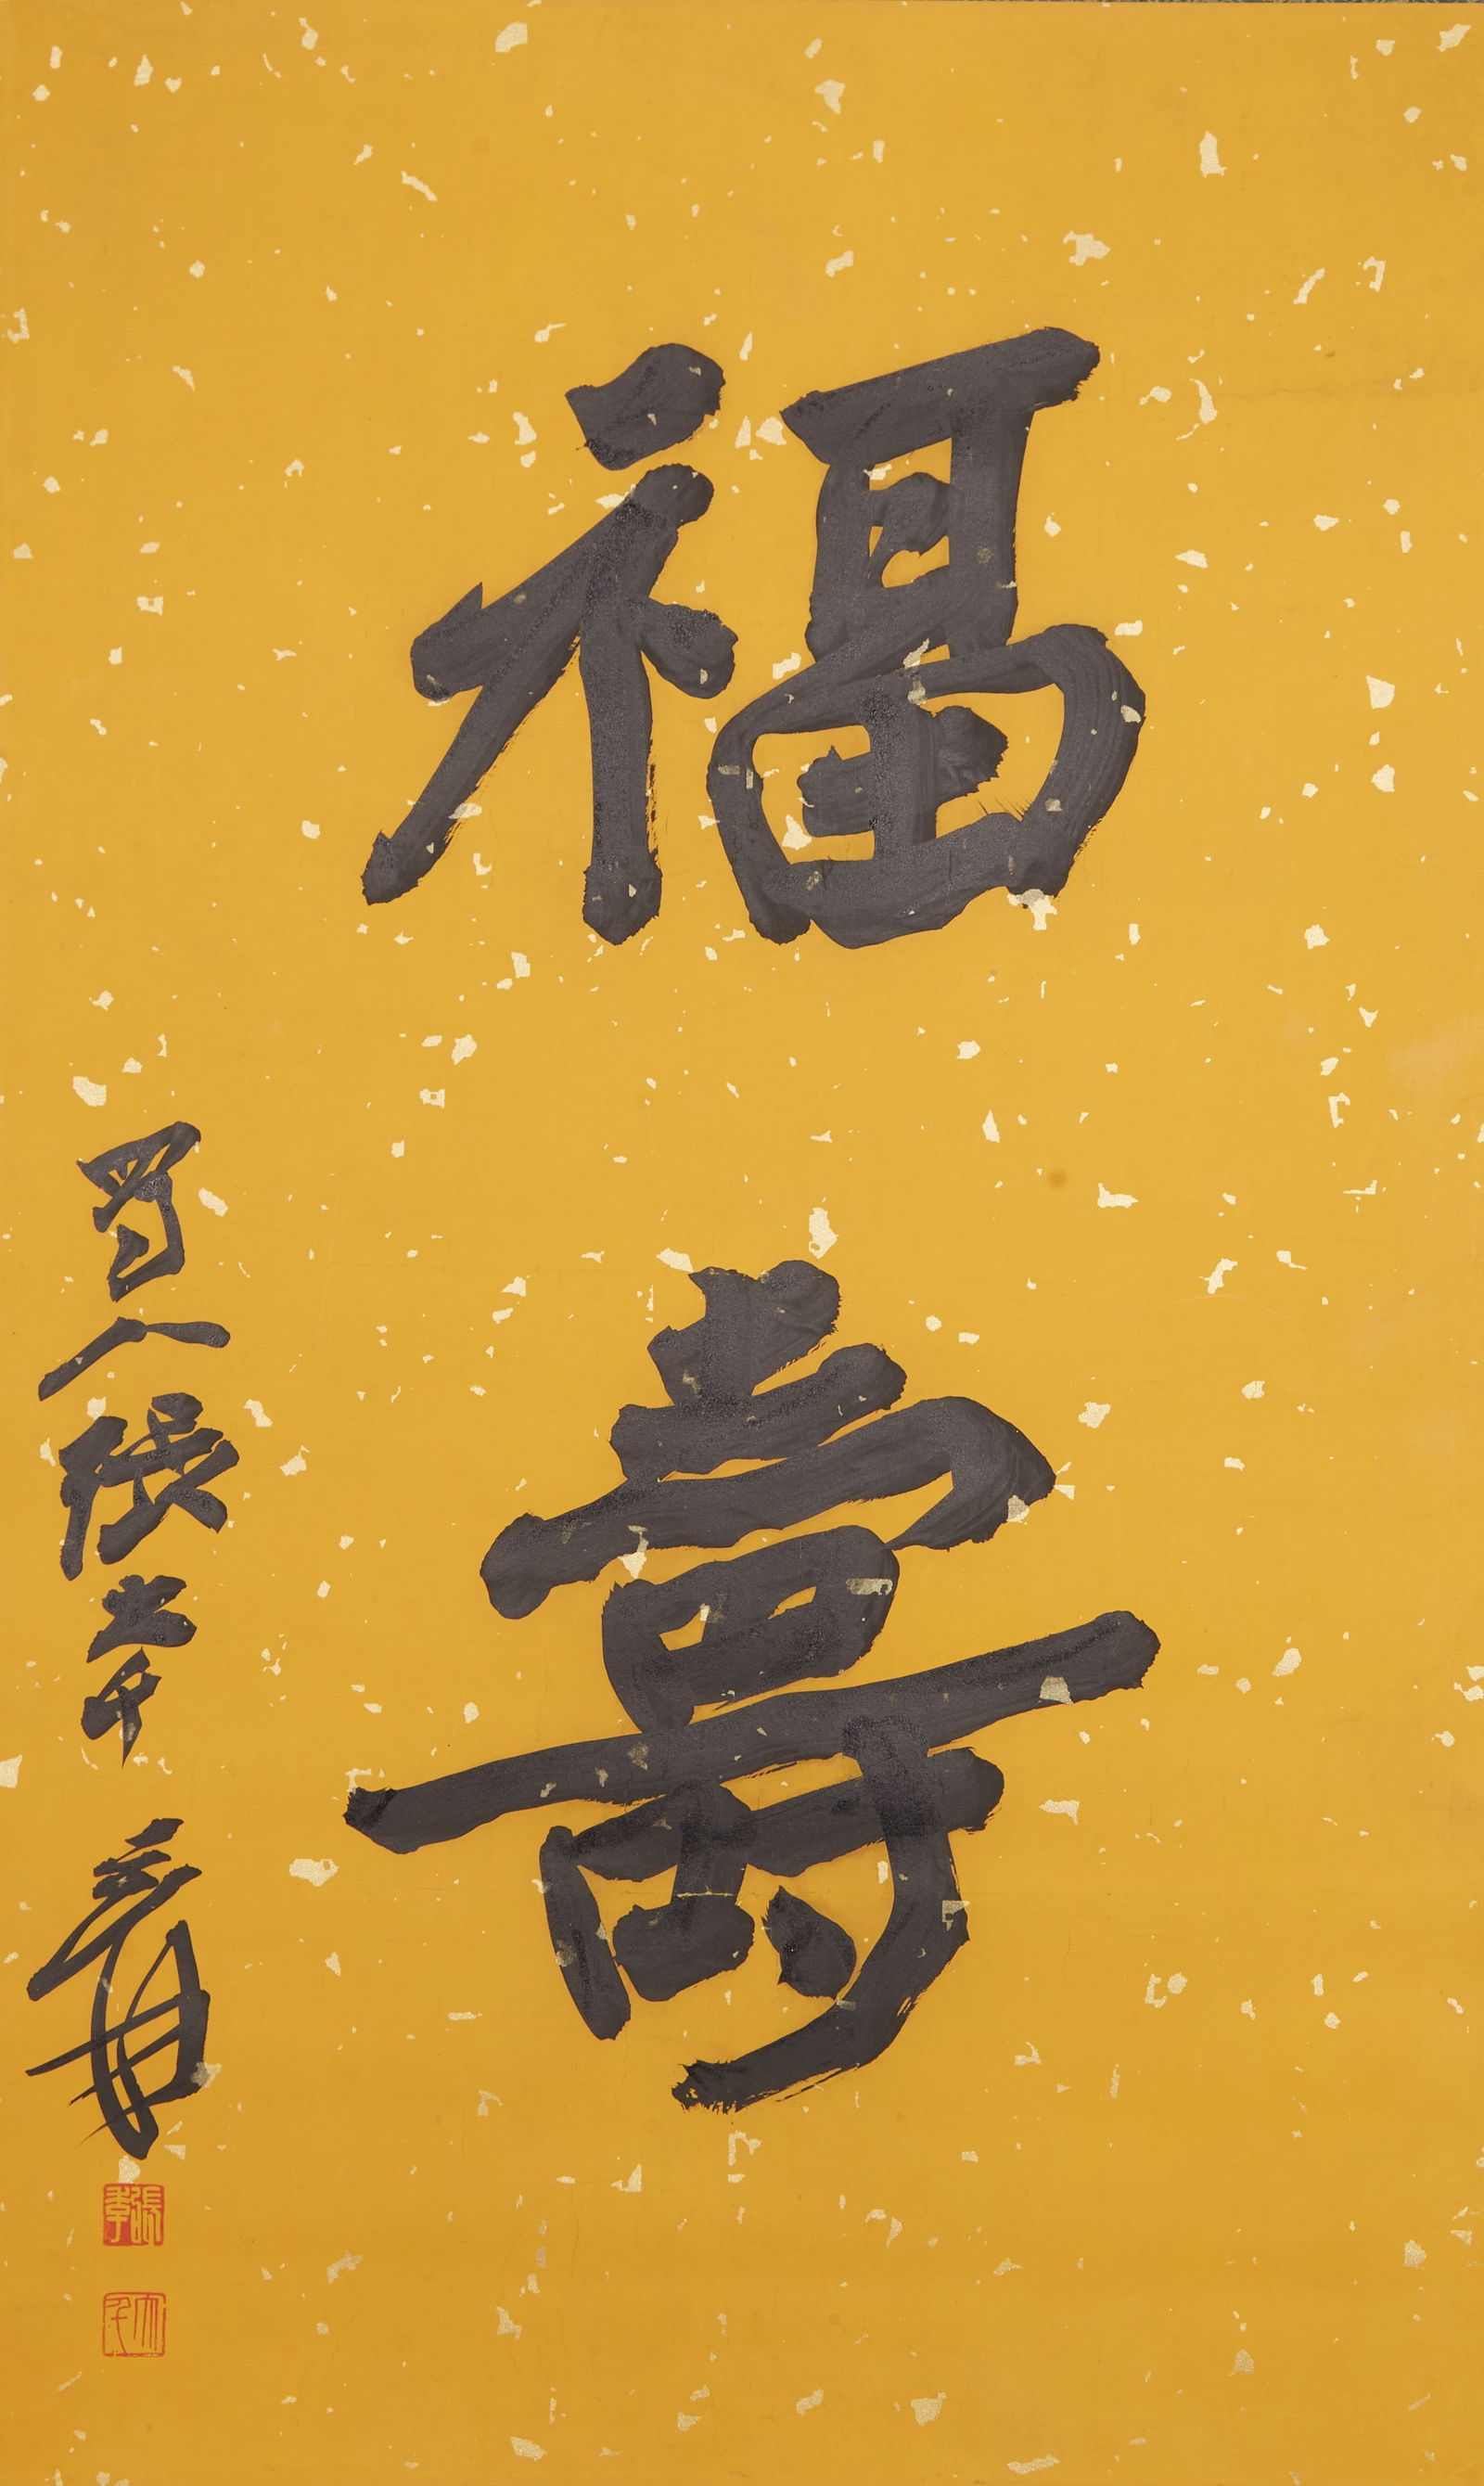 福壽
蜀人張大千爰
張季
大千